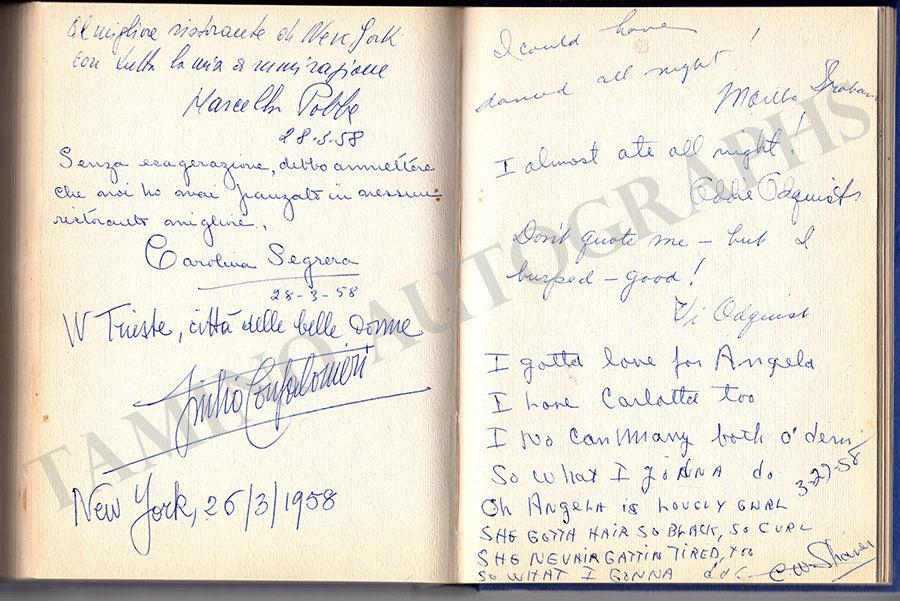 Al migliore ristorante di New York
con tutta la mia ammirazione
Marcella Pobbe
28-3-58
Senza esagerazione, debbo ammettere
che noi ho mai pranzato in nessun
ristorante migliore..
Carolina Segrera
28-3-58
W Trieste, città delle belle donne
Giulio Confalonieri
New York, 26/3/1958
I could have
danced all night!
Martha Graham
I almost ate all night!
Eddie Odquist
Don't quote me – but I
burped – good!
Vi Odquist
I gotta love for Angela
I love Carlotta too
I no can marry both o' dem
So what I gonna do
3-27-58
Oh Angela is lovely gurl
SHE GOTTA HAIR SO BLACK, SO CURL
SHE NEVAIR GATTIN TIRED, TOO
SO WHAT I GONNA
TAMINO AUTOGRAPHS